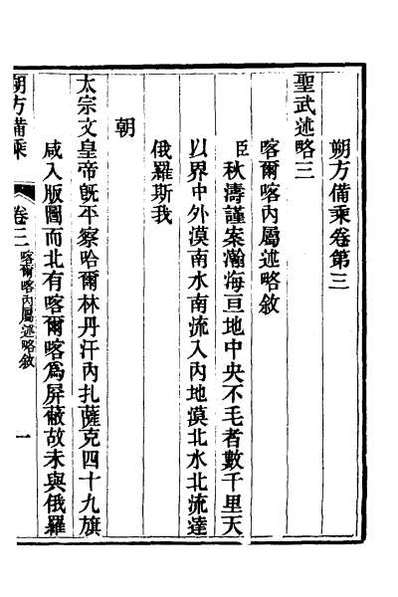 朔方備乘卷第三
聖武述略三
喀爾喀內屬述略敘
臣秋濤謹案瀚海亘地中央不毛者數千里天
以界中外漠南水南流入內地漠北水北流達
俄羅斯我
朝
太宗文皇帝既平察哈爾林丹汗內扎薩克四十九旗
咸入版圖而北有喀爾喀為屏蔽故未與俄羅
朔方備乘 卷三 喀爾喀內屬述略敘 一